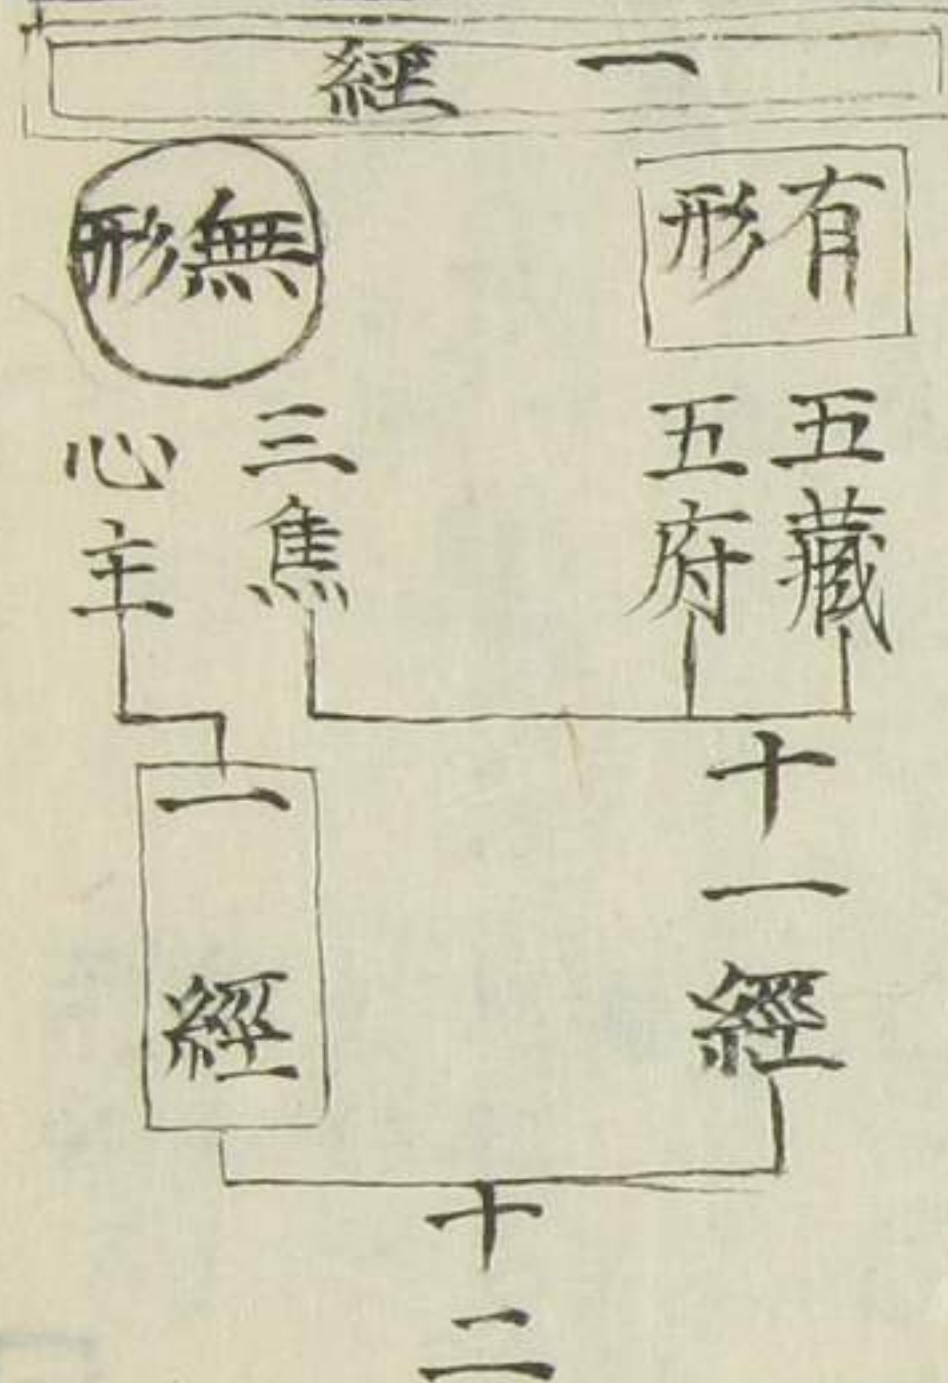 一經
有形
無形
五藏
五府
三焦
心主
十一經
一經
十二